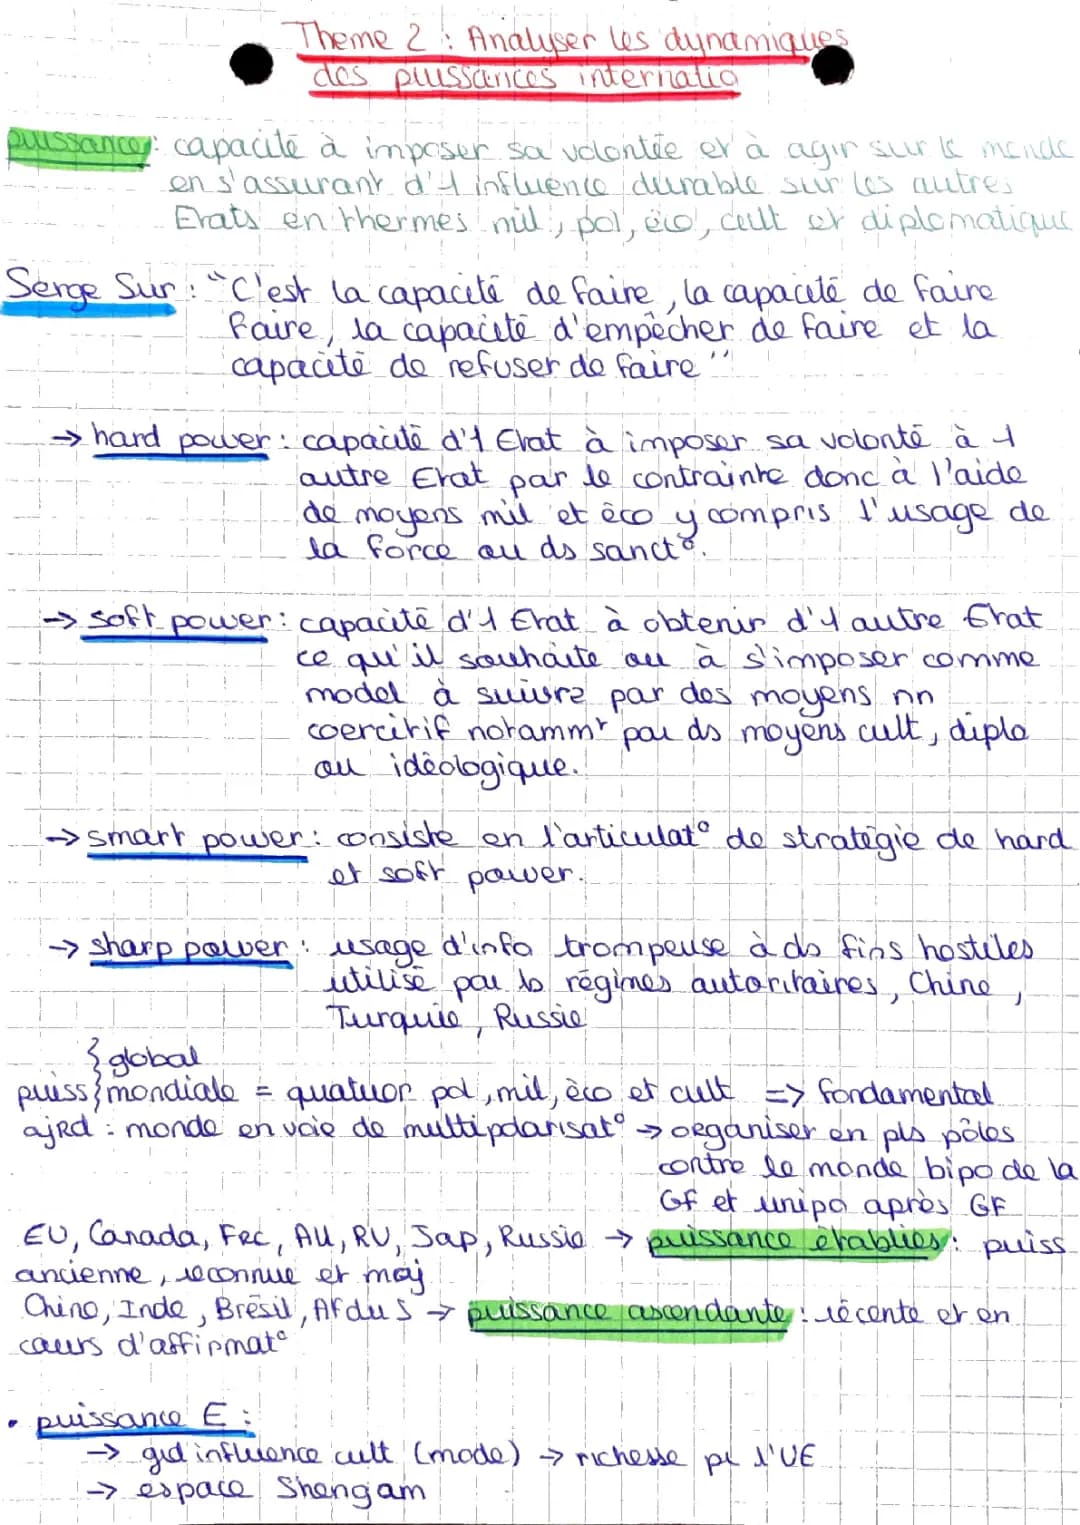 Theme 2 : Analyser les dynamiques
des puissances internatio
puissance : capacité à imposer sa volontée et à agir sur le monde
en s'assurant d'1 influence durable sur les autres
Etats en thermes mil, pol, éco, cult et diplomatique
Serge Sur : "C'est la capacité de faire, la capacité de faire
faire, la capacité d'empêcher de faire et la
capacité de refuser de faire"
→ hard power : capacité d'1 Etat à imposer sa volonté à 1
autre Etat par le contrainte donc à l'aide
de moyens mil et éco y compris l'usage de
la force ou ds sanct°.
→ soft power : capacité d'1 Etat à obtenir d'1 autre Etat
ce qu'il souhaite ou à s'imposer comme
model à suivre par des moyens nn
coercitif notammt par ds moyens cult, diplo
ou idéologique.
→ smart power : consiste en l'articulat° de stratégie de hard
et soft power.
→ sharp power : usage d'info trompeuse à ds fins hostiles
utilisé par ls régimes autoritaires, Chine,
Turquie, Russie
} global
puiss } mondiale = quatuor pol, mil, éco et cult => fondamental
ajRd : monde en voie de multipolarisat° → organiser en pls pôles
contre le monde bipo de la
GF et unipo après GF
EU, Canada, Frc, All, RU, Jap, Russie → puissance établies : puiss
ancienne, reconnue et maj
Chine, Inde, Brésil, Af du S → puissance ascendante : récente et en
cours d'affirmat°
• puissance E :
→ gd influence cult (mode) → richesse pr l'UE
→ espace Shengam